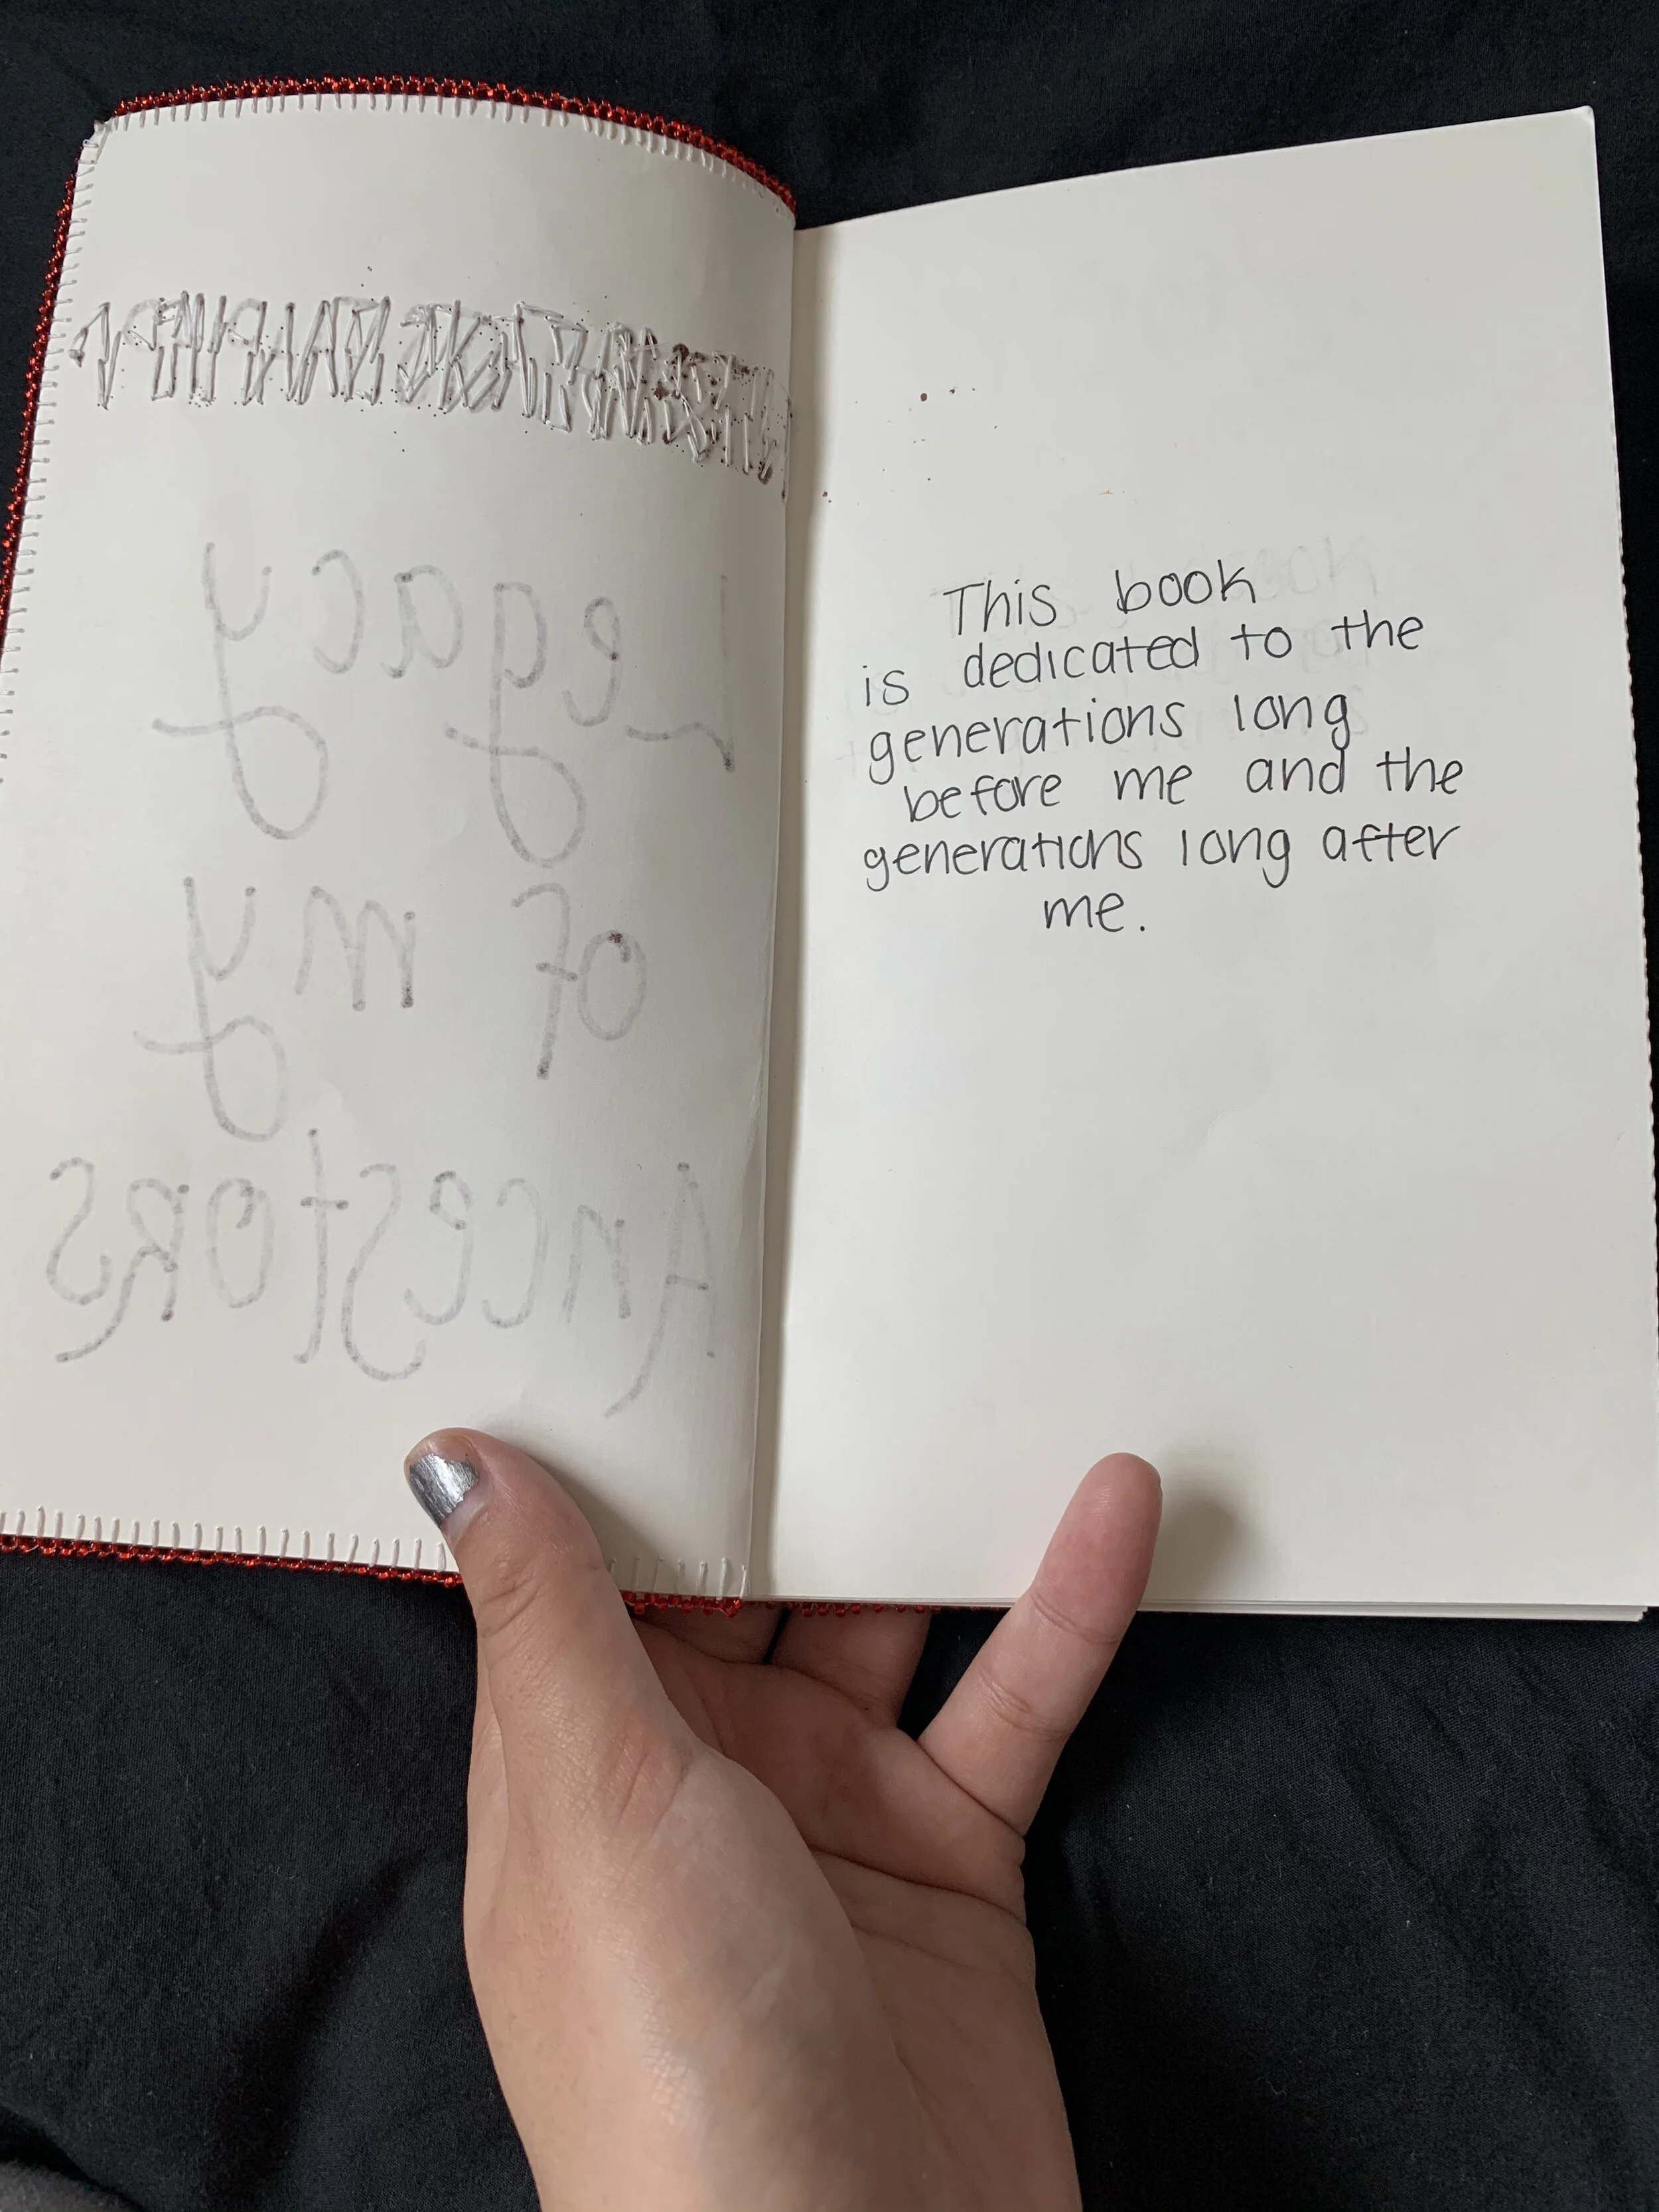 Legacy
of my
Ancestors
This book
is dedicated to the
generations long
before me and the
generations long after
me.